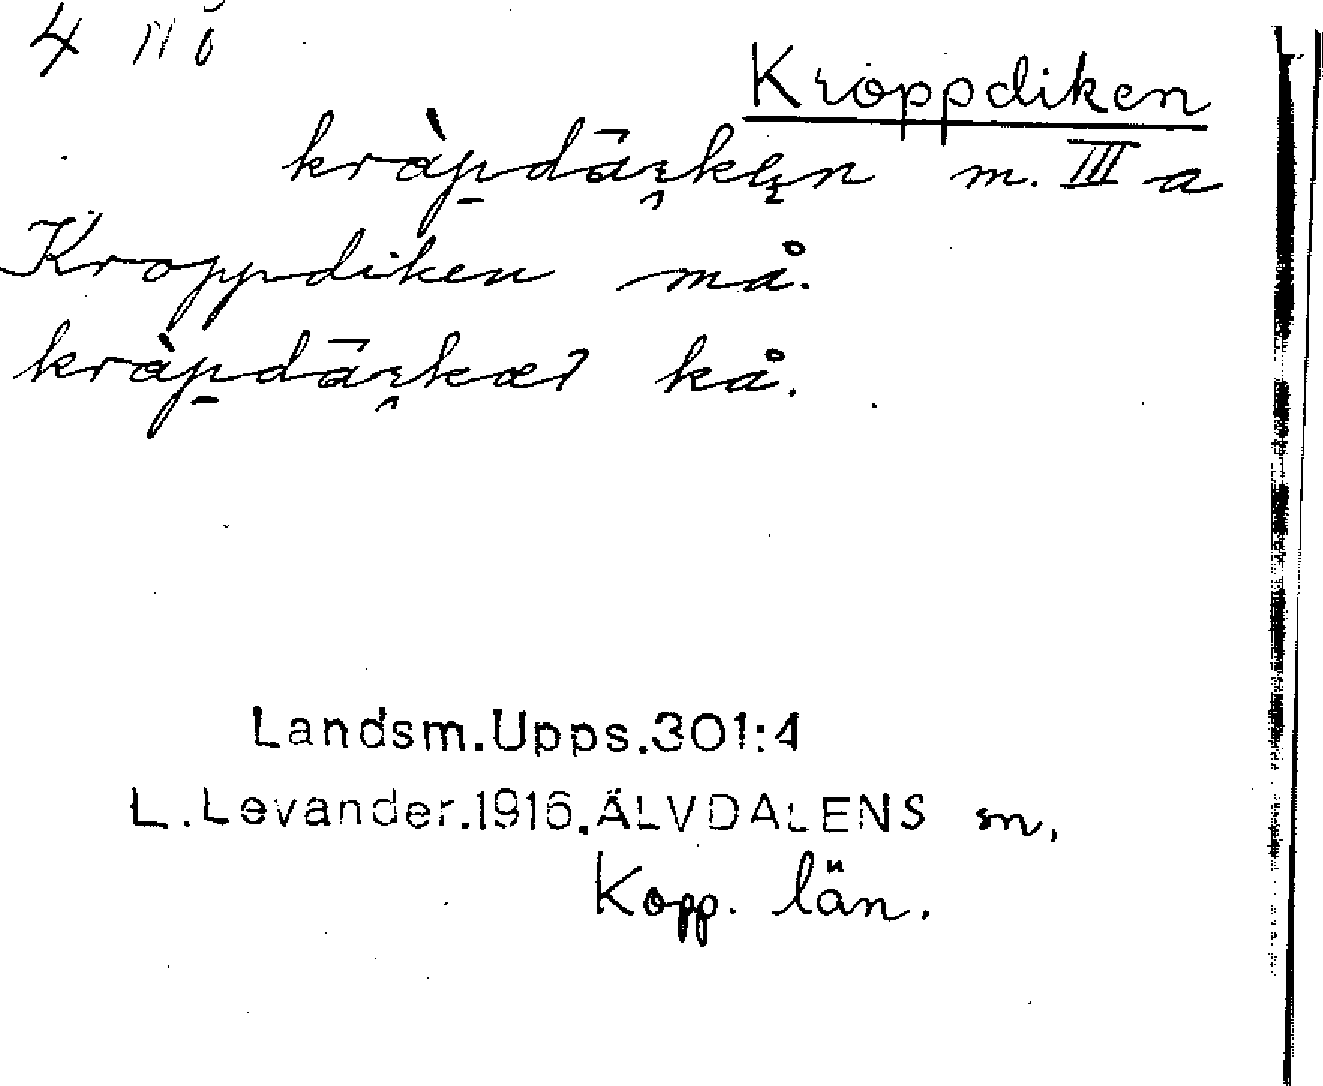 4
Kroppdiken
kråpdäıken m. III a
Kroppdiken må.
kråpdäıkær kå.
Landsm.Upps.301:4
L.Levander.1916.ÄLVDALENS sn,
Kopp. län.